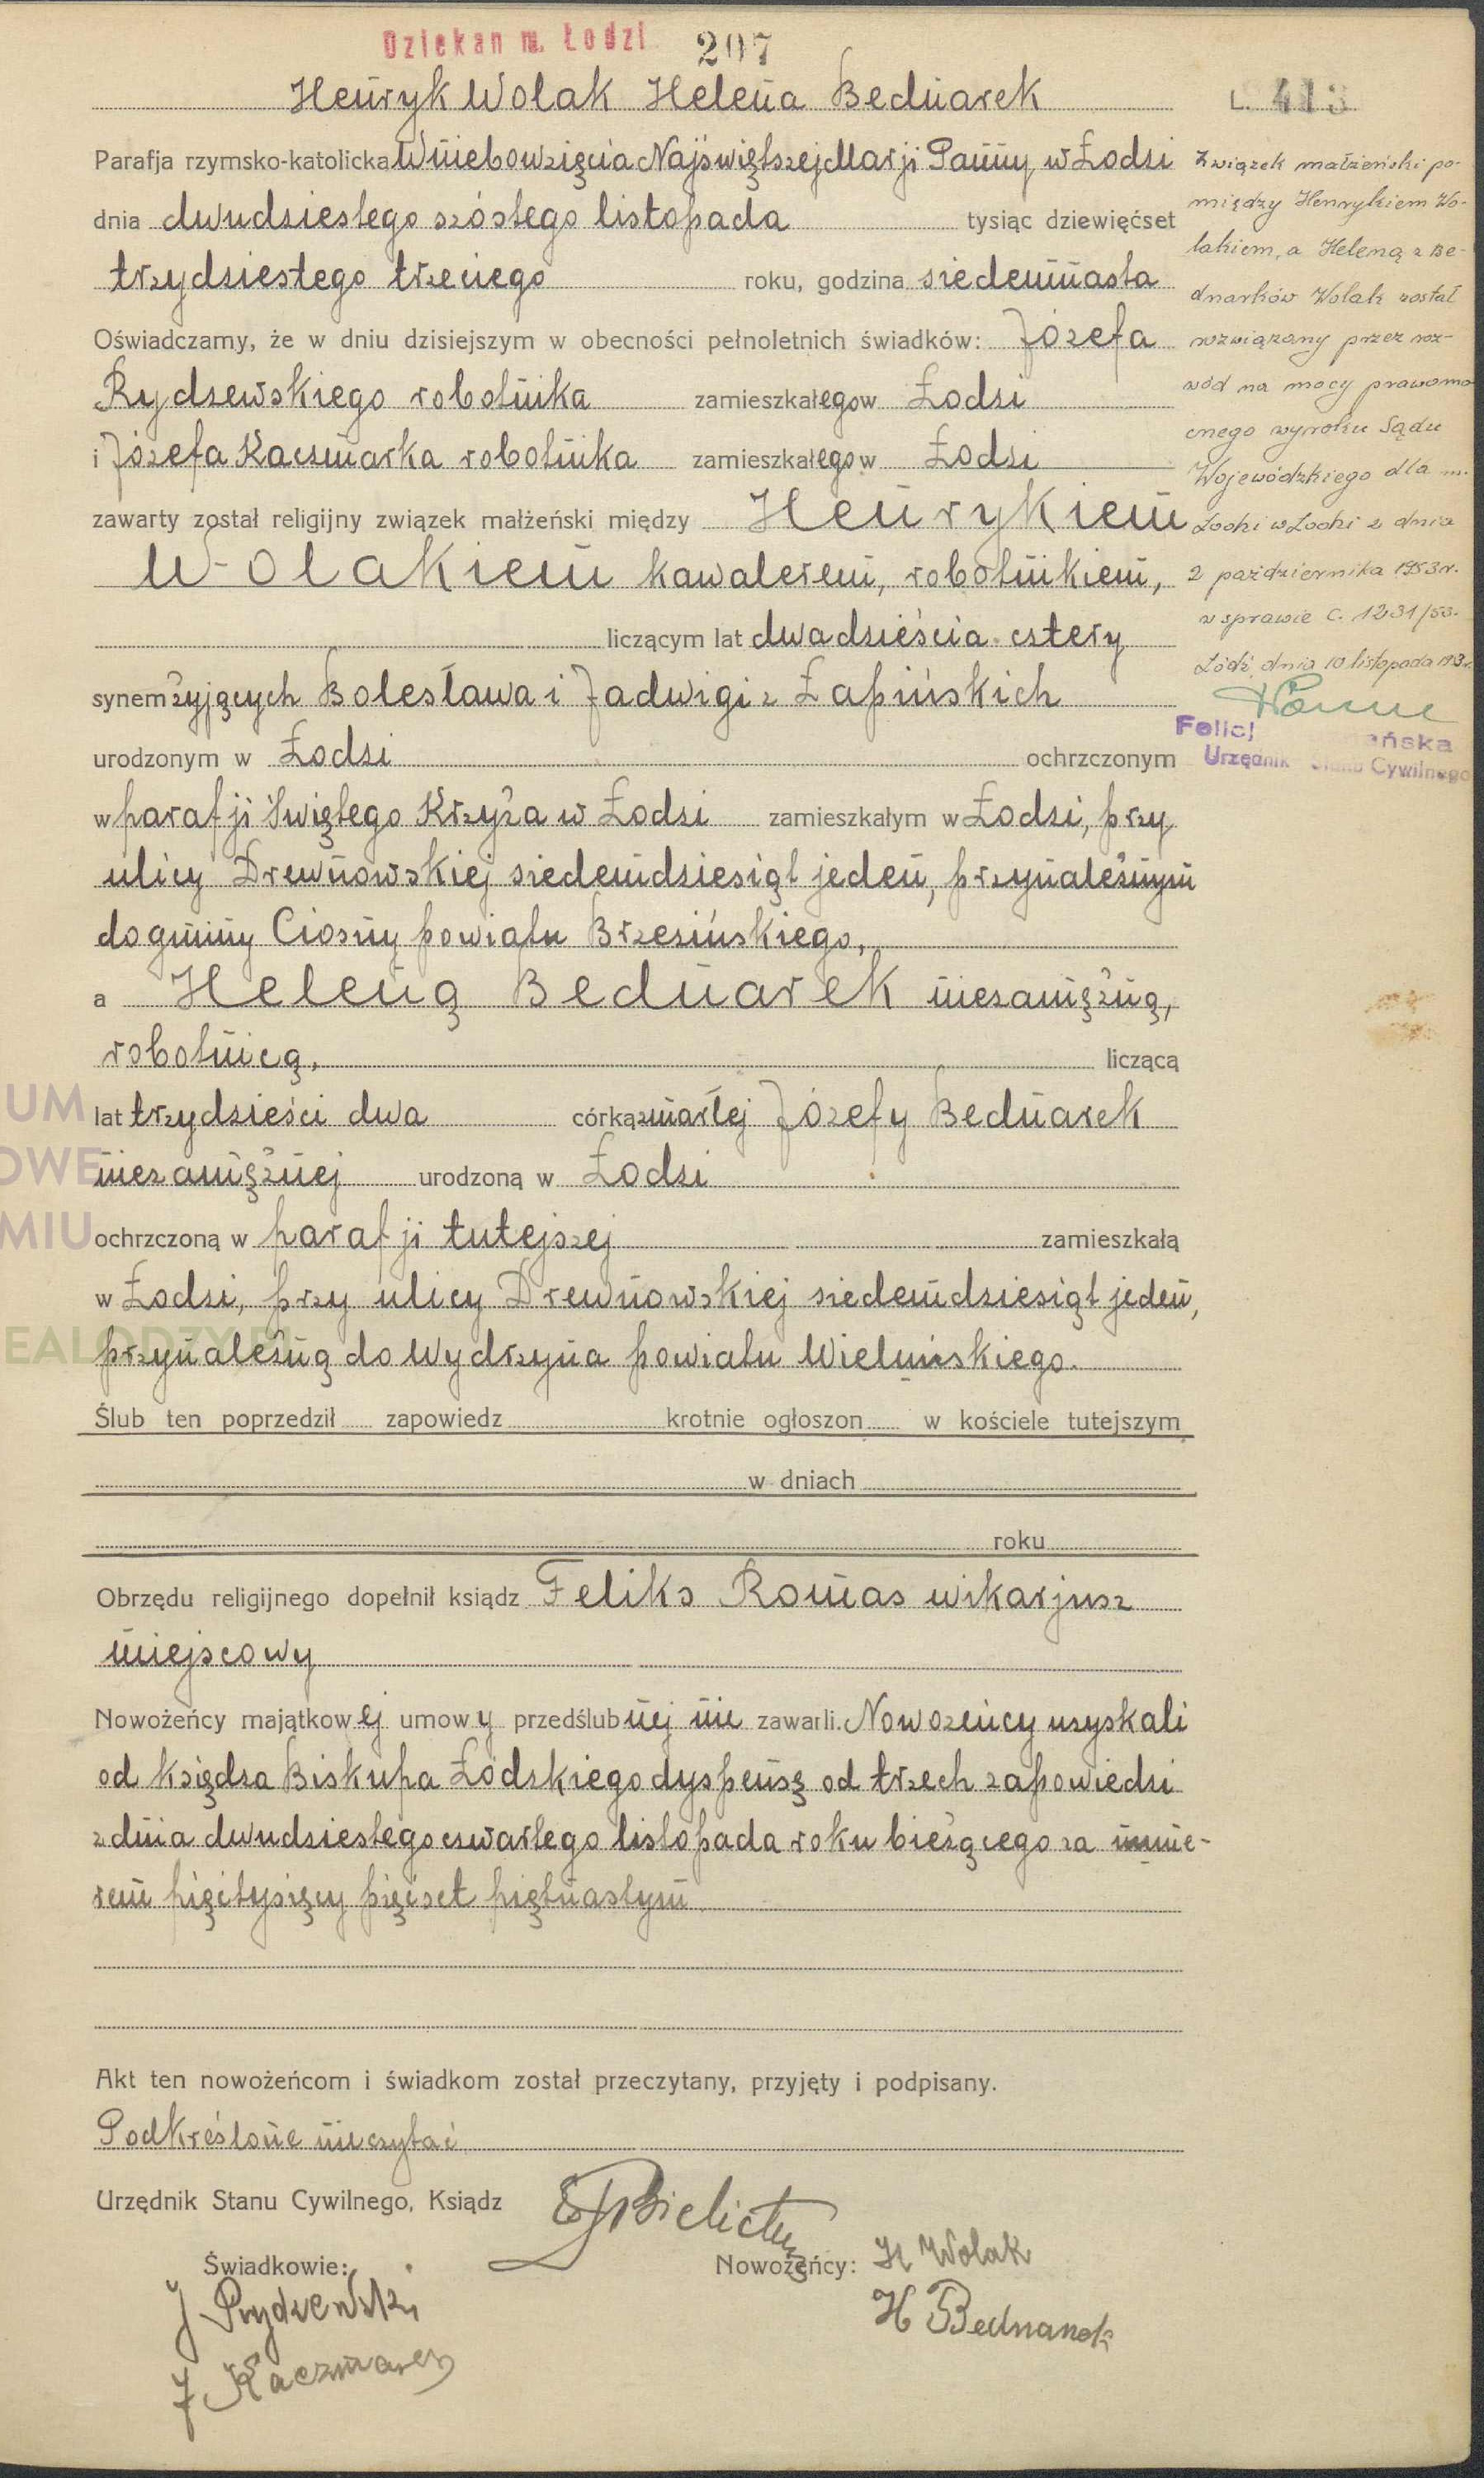 Dziekan m. Łodzi 207
Henryk Wolak Helena Bednarek
L. 413
Parafja rzymsko-katolicka Wniebowzięcia Najświętszej Marji Panny w Łodzi
dnia dwudziestego szóstego listopada tysiąc dziewięćset
trzydziestego trzeciego roku, godzina siedemnasta
Oświadczamy, że w dniu dzisiejszym w obecności pełnoletnich świadków: Józefa
Rydzewskiego robotnika zamieszkałego w Łodzi
i Józefa Kaczmarka robotnika zamieszkałego w Łodzi
zawarty został religijny związek małżeński między Henrykiem
Wolakiem kawalerem, robotnikiem,
liczącym lat dwadzieścia cztery
synem żyjących Bolesława i Jadwigi z Łapińskich
urodzonym w Łodzi ochrzczonym
w parafji Świętego Krzyża w Łodzi zamieszkałym w Łodzi, przy
ulicy Drewnowskiej siedemdziesiąt jeden, przynależnym
do gminy Ciosny powiatu Brzezińskiego,
a Heleną Bednarek niezamężną,
robotnicą, liczącą
lat trzydzieści dwa córką zmarłej Józefy Bednarek
niezamężnej urodzoną w Łodzi
ochrzczoną w parafji tutejszej zamieszkałą
w Łodzi, przy ulicy Drewnowskiej siedemdziesiąt jeden,
przynależną do Wydrzyna powiatu Wieluńskiego.
Ślub ten poprzedził zapowiedz krotnie ogłoszon w kościele tutejszym
w dniach
roku
Obrzędu religijnego dopełnił ksiądz Feliks Romas wikarjusz
miejscowy
Nowożeńcy majątkowej umowy przedślubnej nie zawarli. Nowożeńcy uzyskali
od księdza Biskupa Łódzkiego dyspensę od trzech zapowiedzi
z dnia dwudziestego czwartego listopada roku bieżącego za nume-
rem pięć tysięcy pięćset piętnastym
Akt ten nowożeńcom i świadkom został przeczytany, przyjęty i podpisany.
Podkreślone nie czytać
Urzędnik Stanu Cywilnego, Ksiądz
Świadkowie: Nowożeńcy: H Wolak
J Rydzewski H Bednarek
J Kaczmarek
Związek małżeński po-
między Henrykiem Wo-
lakiem, a Heleną z Be-
dnarków Wolak został
rozwiązany przez roz-
wód na mocy prawomo
cnego wyroku Sądu
Wojewódzkiego dla m.
Łodzi w Łodzi z dnia
2 października 1953 r.
w sprawie C. 1231/53.
Łódź, dnia 10 listopada 1953 r.
Felicj ańska
Urzędnik Stanu Cywilnego
UM
OWE
MIU